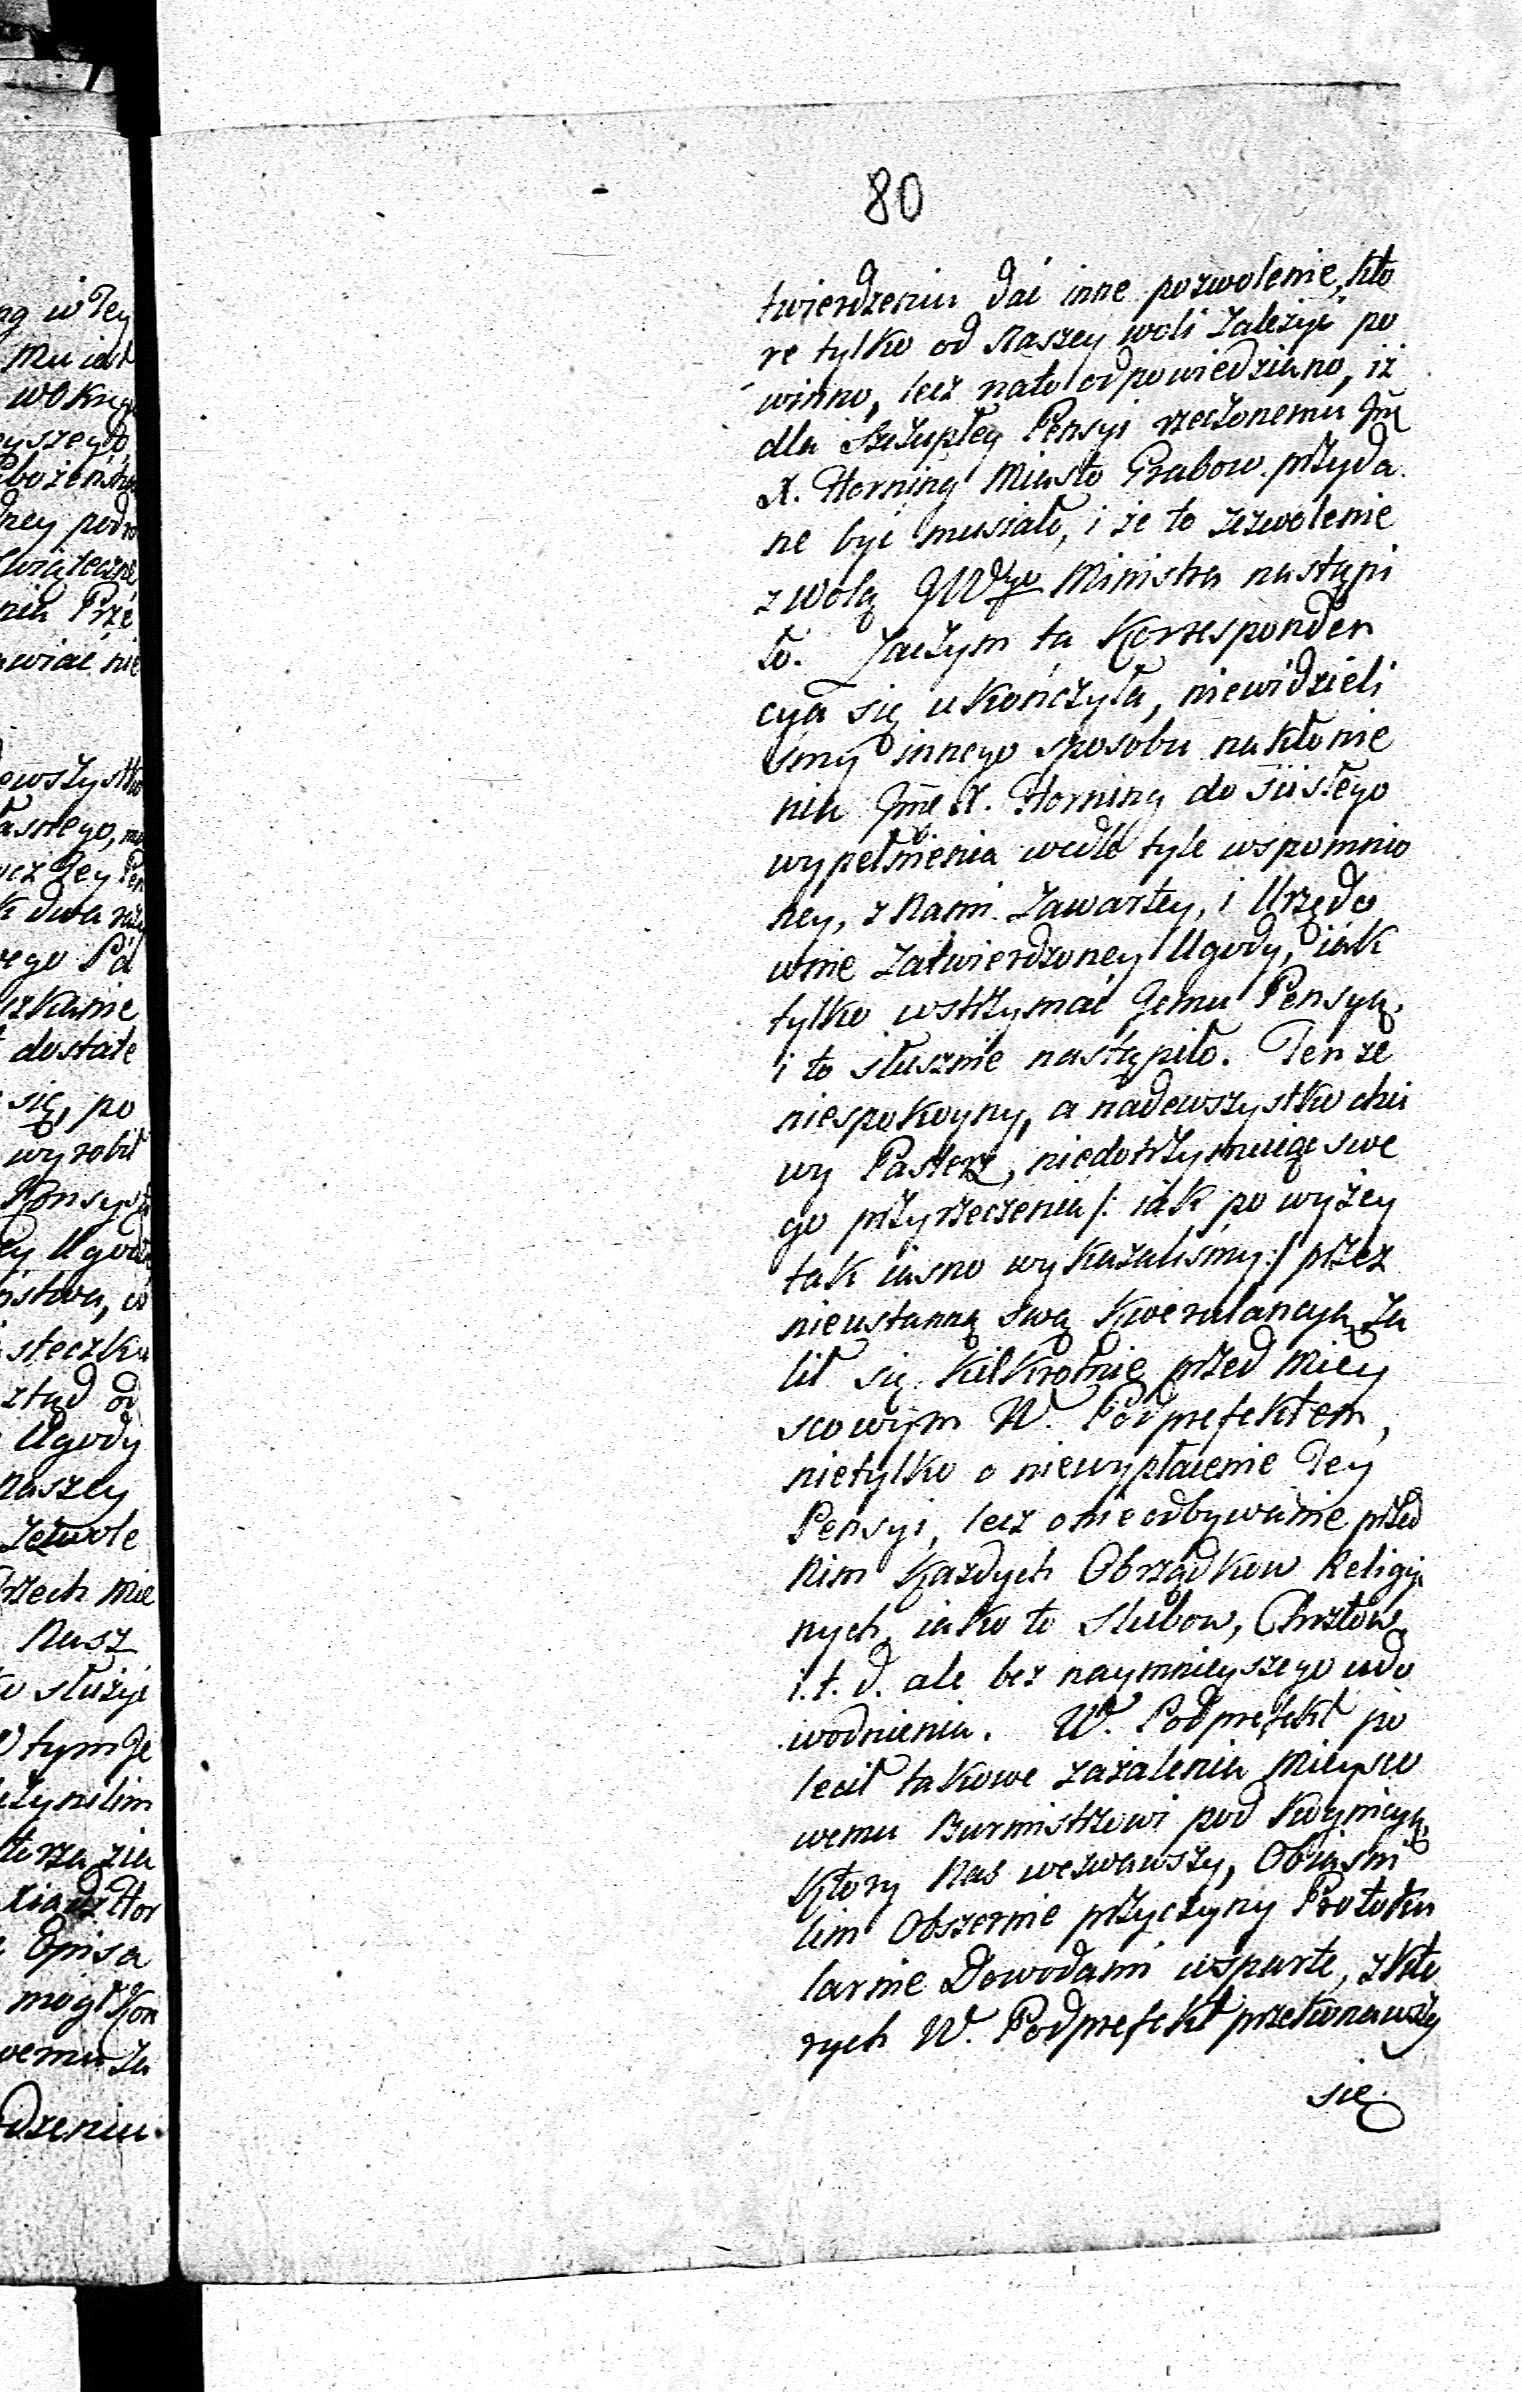 80
twierdzeniu dać inne pozwolenie, kto
re tylko od Naszey woli zależyć po
winno, lecz nato odpowiedziano, iż
dla szczupłey Pensyi rzeczonemu Jm
X. Horning Miasto Grabow przyda
ne być musiało, i że to zezwolenie
z wolą JWgo Ministra nastąpi
ło. Zaczym ta Korresponden
cya się ukończyła, niewidzieli
smy innego sposobu nakłonie
nia Jmę X. Horning do ściśłego
wypełnienia wedle tyle wspomnio
ney, z Nami zawartey, i Urzędo
wnie zatwierdzoney Ugody, iak
tylko wstrzymać Jemu Pensyą,
i to słusznie nastąpiło. Ten ze
niespokoyny, a nadewszystko chci
wy Pasterz, niedotrzymuiąc swe
go przyrzeczenia /: iak po wyżey
tak iasno wykazaliśmy :/ przez
nieustanną swą Kwerulancyą ża
lił się kilkrotnie przed Miey
scowym W. Podprefektem,
nietylko o niewypłacenie Tey
Pensyi, lecz o nieodbywanie przed
Nim Każdych Obrządkow Religij
nych, iako to Slubow, Chrztow
i. t. d. ale bez naymnieyszego udo
wodnienia. W. Podprefekt po
lecił takowe zażalenia Mieysco
wemu Burmistrzowi pod
Ktory Nas wezwawszy, Obiaśni
lim Obszernie przyczyny Protoku
larnie Dowodami wsparte, z Kto
rych W. Podprefekt przekonawszy
się
ng w Tey
Mu iest
eyszego,
Prze
awiać nie
ego Pa
dostate
się, po
wyrobił
Ugody
Naszey
zezwole
Trzech Mie
Nasz
służyć
w tym Je
Opisa
mogł Kon
wemu za
dzeniu